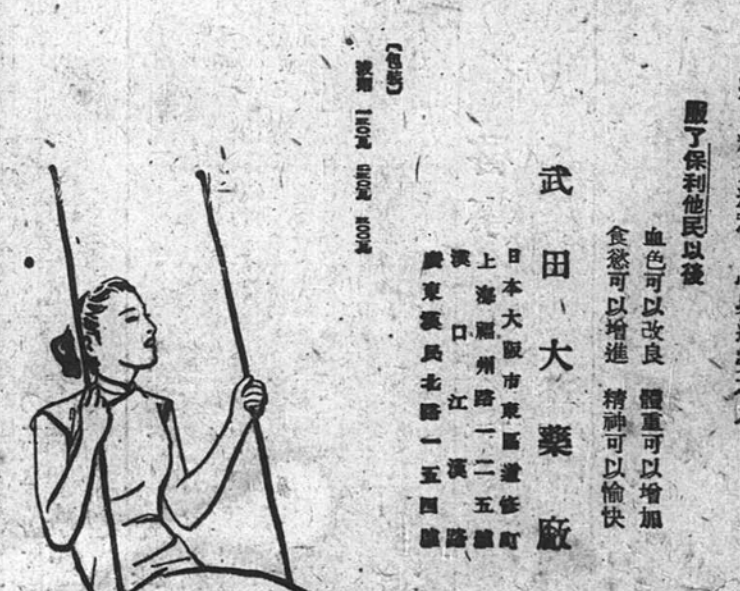 服了保利他民以後
血色可以改良　體重可以增加
食慾可以增進　精神可以愉快
武田大藥廠
日本大阪市東區道修町
上海福州路一二五號
漢口江漢路
廣東漢民北路一五四號
【包裝】